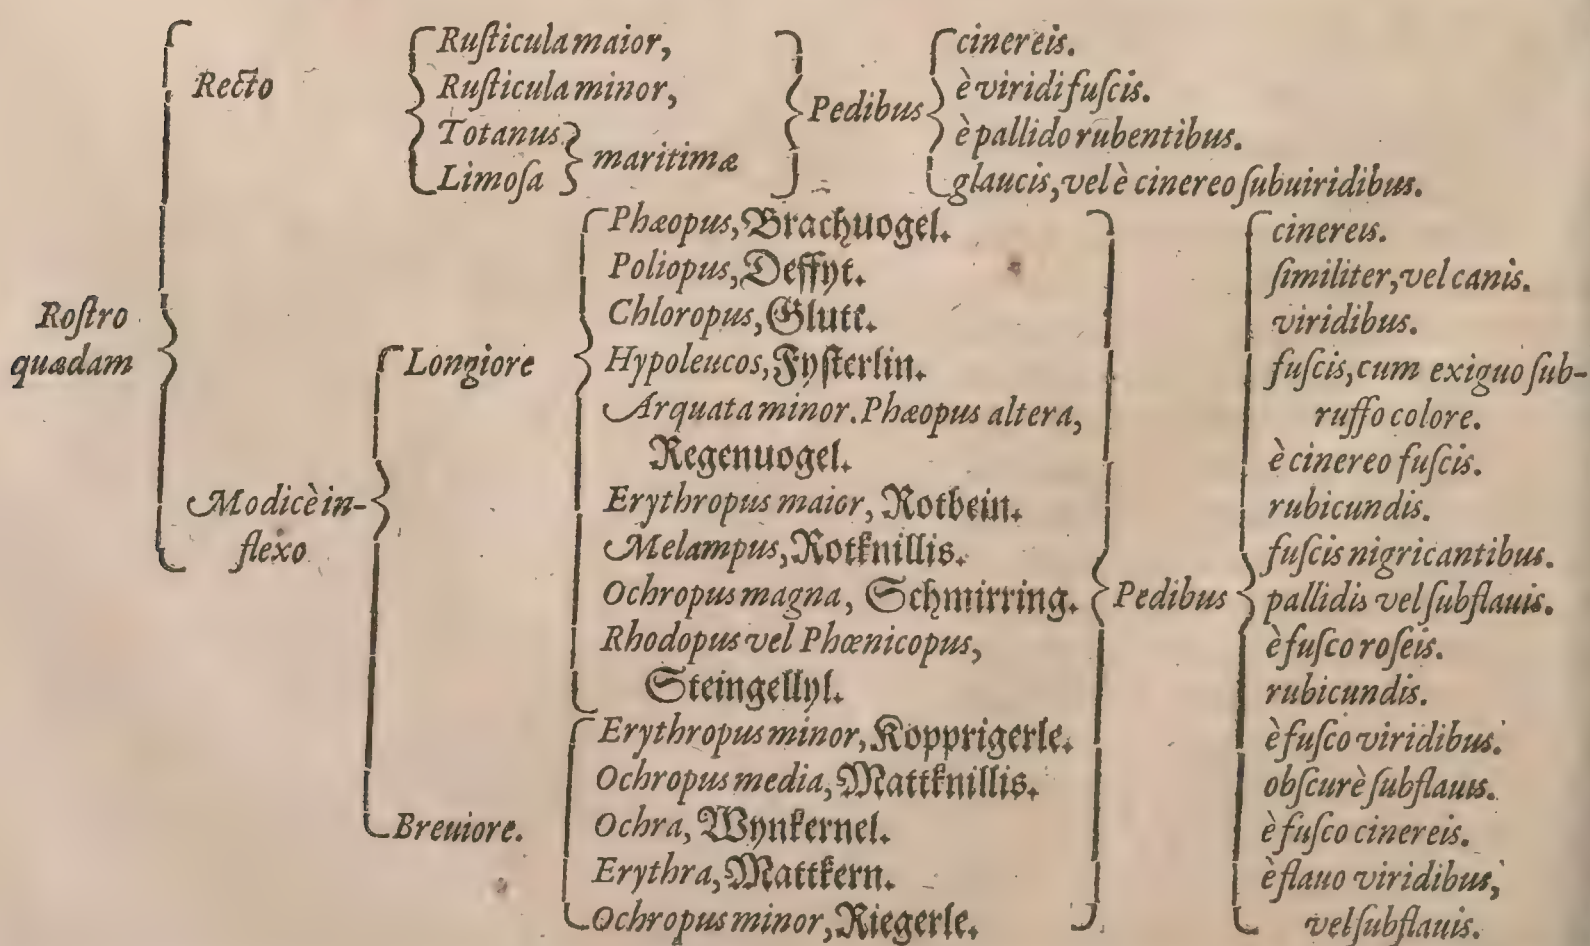 Recto
Ruſticula maior,
Ruſticula minor,
Totanus
Limoſa
maritimæ
Pedibus
cinereis.
è viridi fuſcis.
è pallido rubentibus.
glaucis, vel è cinereo ſubuiridibus.
Roſtro
quædam
Modicè in-
flexo
Longiore
Phæopus, Brachuogel.
Poliopus, Deffyt.
Chloropus, Glutt.
Hypoleucos, Fyſterlin.
Arquata minor. Phæopus altera,
Regenuogel.
Erythropus maior, Rotbein.
Melampus, Rotknillis.
Ochropus magna, Schmirring.
Rhodopus vel Phœnicopus,
Steingellyl.
Breuiore.
Erythropus minor, Kopprigerle.
Ochropus media, Mattknillis.
Ochra, Wynkernel.
Erythra, Mattkern.
Ochropus minor, Riegerle.
Pedibus
cinereis.
ſimiliter, vel canis.
viridibus.
fuſcis, cum exiguo ſub-
ruffo colore.
è cinereo fuſcis.
rubicundis.
fuſcis nigricantibus.
pallidis vel ſubflauis.
è fuſco roſeis.
rubicundis.
è fuſco viridibus.
obſcurè ſubflauis.
è fuſco cinereis.
è flauo viridibus,
vel ſubflauis.